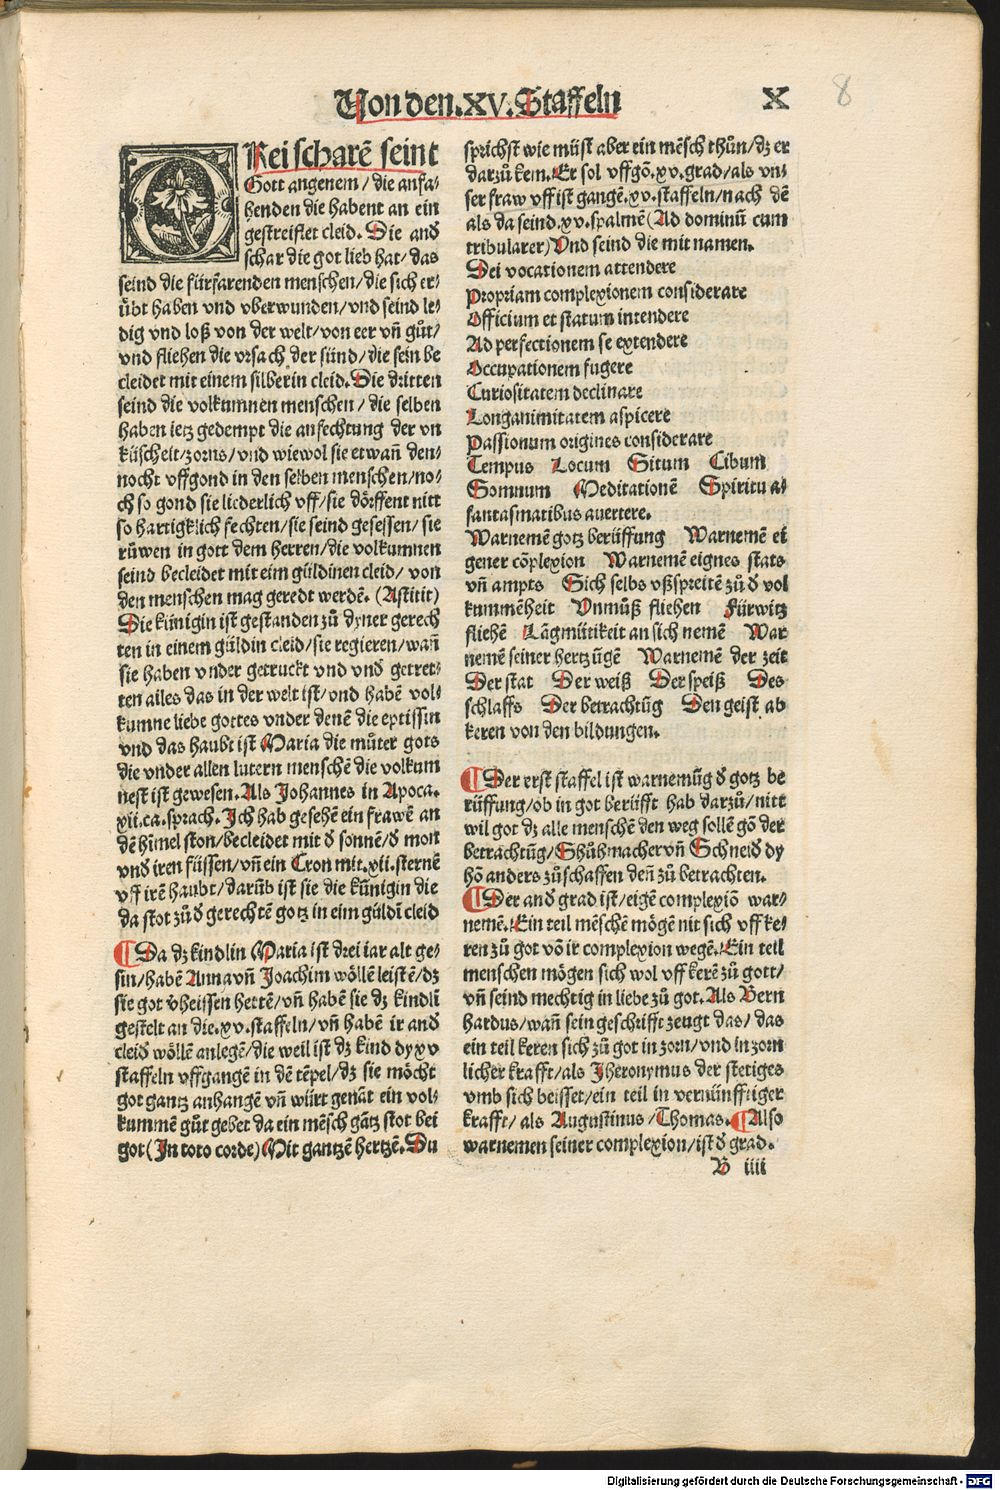 Von den .XV. Staffeln
X
8
DRei scharē seint
Gott angenem / die anfa⸗
henden die habent an ein
gestreiflet cleid. Die and
schar die got lieb hat / das
seind die fürfarenden menschen / die sich er⸗
übt haben vnd vberwunden / vnd seind le⸗
dig vnd loß von der welt / von eer vñ gůt /
vnd fliehen die vrsach der sünd / die sein be
cleidet mit einem silberin cleid. Die dritten
seind die volkumnen menschen / die selben
haben ietz gedempt die anfechtung der vn
küscheit / zorns / vnd wiewol sie etwañ den⸗
nocht vffgond in den selben menschen / no⸗
ch so gond sie liederlich vff / sie dörffent nitt
so hartigklich fechten / sie seind gesessen / sie
růwen in gott dem herren / die volkumnen
seind becleidet mit eim güldinen cleid / von
den menschen mag geredt werdē. (Astitit)
Die künigin ist gestanden zů dyner gerech
ten in einem güldin cleid / sie regieren / wañ
sie haben vnder getruckt vnd vnđ getret⸗
ten alles das in der welt ist / vnd habē vol⸗
kumne liebe gottes vnder denē die eptissin
vnd das haubt ist Maria die můter gots
die vnder allen lutern menschē die volkum
nest ist gewesen. Als Johannes in Apoca.
xii.ca. sprach. Ich hab gesehē ein frawē an
dē hīmel ston / becleidet mit đ sonnē / đ mon
vnđ iren füssen / vñ ein Cron mit .xii. sternē
vff irē haubt / darūb ist sie die künigin die
da stot zů đ gerechtē gotz in eim güldī cleid
¶ Da dz kindlin Maria ist drei iar alt ge⸗
sin / habē Anna vñ Joachim wöllē leistē / dz
sie got v̄heissen hettē / vñ habē sie dz kindlī
gestelt an die .xv. staffeln / vñ habē ir and
cleid wöllē anlegē / die weil ist dz kind dy xv
staffeln vffgangē in dē tēpel / dz sie möcht
got gantz anhangē vñ würt genāt ein vol⸗
kummē gůt gebet da ein mēsch gātz stot bei
got (In toto corde) Mit gantzē hertzē. Du
sprichst wie můst aber ein mēsch thůn / dz er
darzů kem. Er sol vffgō .xv. grad / als vn⸗
ser fraw vff ist gangē .xv. staffeln / nach dē
als da seind .xv. spalmē (Ad dominū cum
tribularer) Vnd seind die mit namen.
Dei vocationem attendere
Propriam complexionem considerare
Officium et statum intendere
Ad perfectionem se extendere
Occupationem fugere
Curiositatem declinare
Longanimitatem aspicere
Passionum origines considerare
Tempus Locum Situm Cibum
Somnum Meditationē Spiritū a⸗
fantasmatibus auertere.
Warnemē gotz berüffung Warnemē ei
gener cōplexion Warnemē eignes stats
vñ ampts Sich selbs vßspreitē zů đ vol
kummēheit Vnmůß fliehen Fürwitz
fliehē Lāgmütikeit an sich nemē War
nemē seiner hertzūgē Warnemē der zeit
Der stat Der weiß Der speiß Des
schlaffs Der betrachtūg Den geist ab
keren von den bildungen.
¶ Der erst staffel ist warnemūg đ gotz be
rüffung / ob in got berüfft hab darzů / nitt
wil got dz alle menschē den weg sollē gō der
betrachtūg / Shůhmacher vñ Schneiđ dy
hō anders zůschaffen deñ zů betrachten.
¶ Der and grad ist / eigē complexiō war⸗
nemē. Ein teil mēschē mögē nit sich vff ke⸗
ren zů got vō ir complexion wegē. Ein teil
menschen mögen sich wol vff kerē zů gott /
vñ seind mechtig in liebe zů got. Als Bern
hardus / wañ sein geschrifft zeugt das / das
ein teil keren sich zů got in zorn / vnd in zorn
licher krafft / als Jheronymus der stetiges
vmb sich beisset / ein teil in vernünfftiger
krafft / als Augustinus / Thomas. ¶ Also
warnemen seiner complexion / ist đ grad.
B iiii
Digitalisierung gefördert durch die Deutsche Forschungsgemeinschaft - DFG